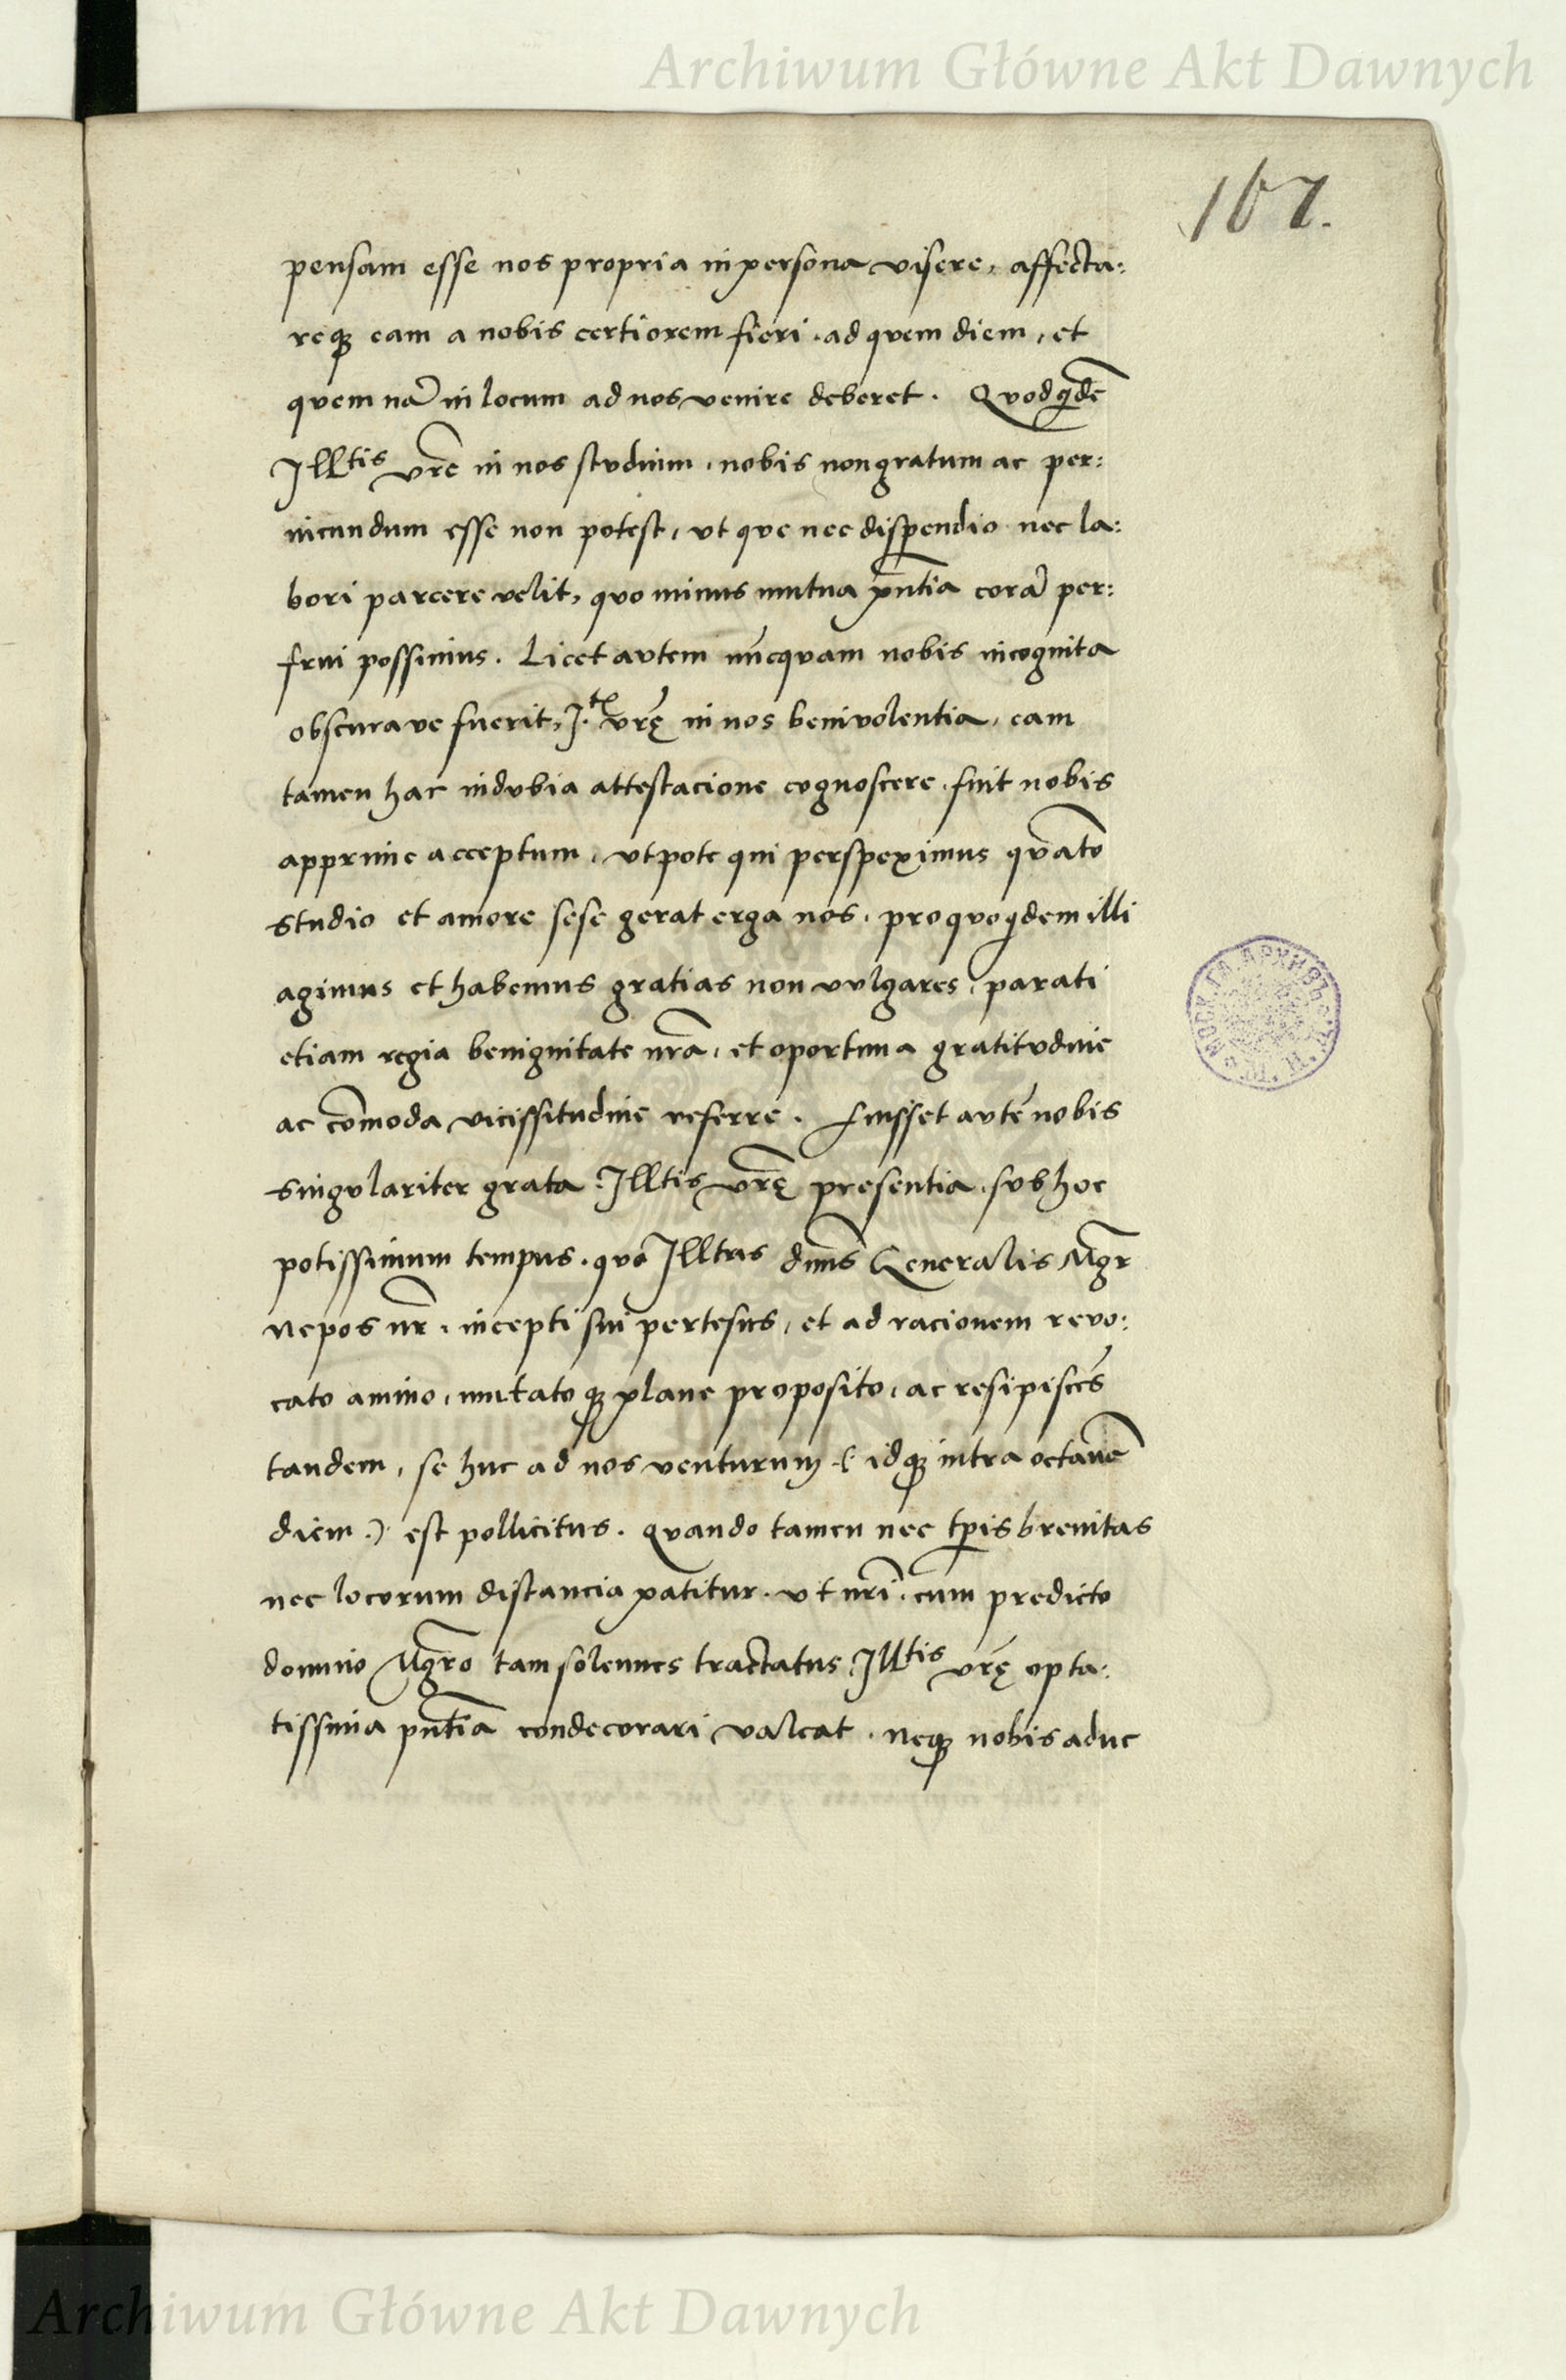 Archiwum Główne Akt Dawnych
167.
pensam esse nos propria in persona visere, affecta:
reqꝫ eam a nobis certiorem fieri. ad qvem diem, et
qvem nā in locum ad nos venire deberet. Qvod qdē
Illtis vrē in nos stvdium, nobis non gratum ac per:
iucundum esse non potest, vt qve nec dispendio nec la:
bori parcere velit, qvo minus mutua pn̄tia corā per:
frui possimus. Licet avtem nūcqvam nobis incognita
obscurave fuerit, I. vrę̄ in nos benivolentia, eam
tamen hac indvbia attestacione cognoscere. fuit nobis
apprime acceptum, vtpote qui perspeximus qvāto
studio et amore sese gerat erga nos. pro qvo qdem illi
agimus et habemus gratias non vvlgares, parati
etiam regia benignitate nrā, et oportuna gratitvdine
ac cōmoda vicissitudine referre. Fuisset avtē nobis
singvlariter grata Illtis vrę̄ presentia. svb hoc
potissimum tempus. qvo Illtris dn̄us Generalis Mgr̄
Nepos nr̄. incepti sui pertesus, et ad racionem revo:
cato animo, mutatoqꝫ plane proposito, ac resipiscēs
tandem, se huc ad nos venturum (idqꝫ intra octavē
diem.) est pollicitus. Qvando tamen nec tp̄is brevitas
nec locorum distancia patitur. vt nrī. cum predicto
domino Mgr̄o tam solennes tractatus Illtis vrę̄ opta:
tissima pn̄tia condecorari valeat. neqꝫ nobis aduc
Archiwum Główne Akt Dawnych